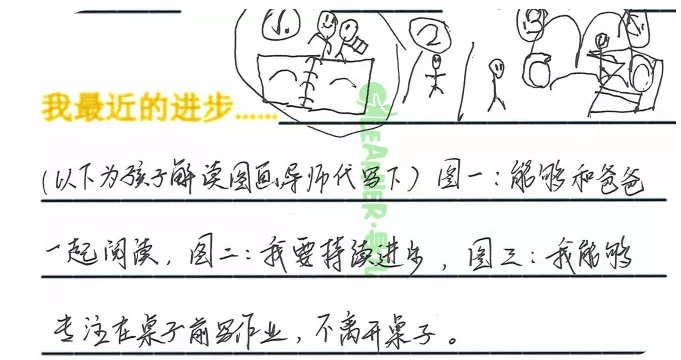 1. 2 3
我最近的进步......
(以下为孩子解读图画,导师代写下) 图一:能够和爸爸
一起阅读,图二:我要持续进步,图三:我能够
专注在桌子前写作业,不离开桌子。
LEARNER.